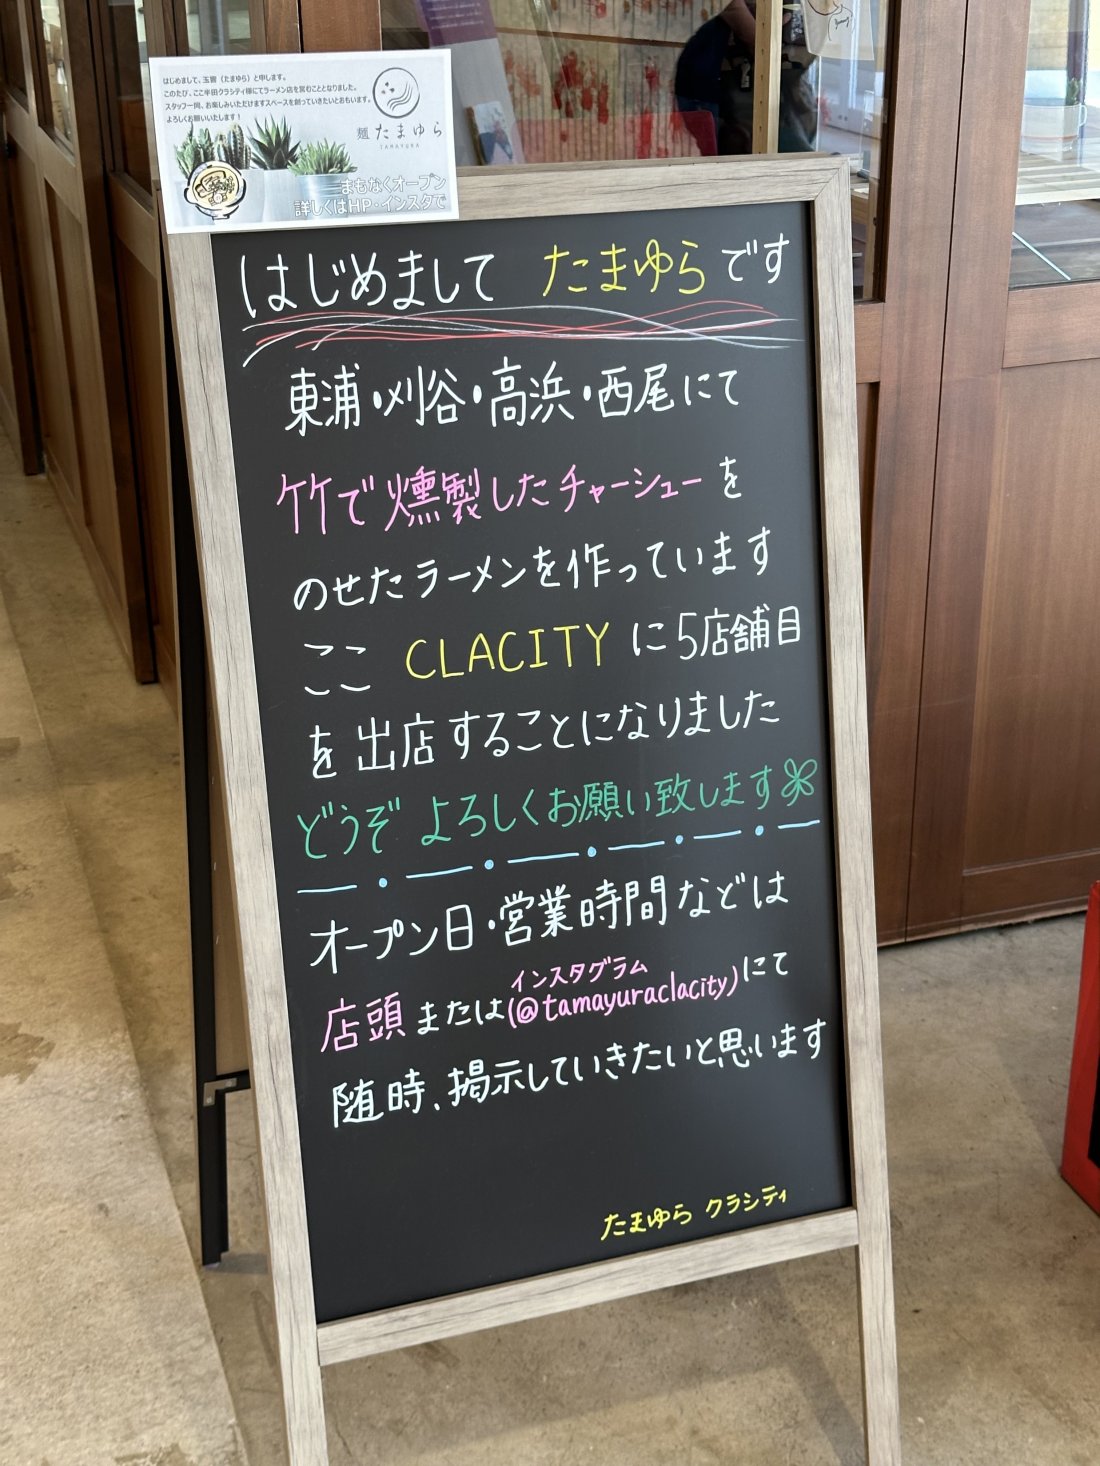 はじめまして、玉響（たまゆら）と申します。
このたび、ここ半田クラシティ様にてラーメン店を営むこととなりました。
スタッフ一同、お楽しみいただけますスペースを創っていきたいとおもいます。
よろしくお願いいたします！
麺 たまゆら
TAMAYURA
まもなくオープン
詳しくはHP・インスタで
はじめまして たまゆらです
東浦・刈谷・高浜・西尾にて
竹で燻製したチャーシューを
のせたラーメンを作っています
ここ CLACITY に5店舗目
を出店することになりました
どうぞ よろしくお願い致します
オープン日・営業時間などは
インスタグラム
店頭 または(@tamayuraclacity)にて
随時、掲示していきたいと思います
たまゆら クラシティ